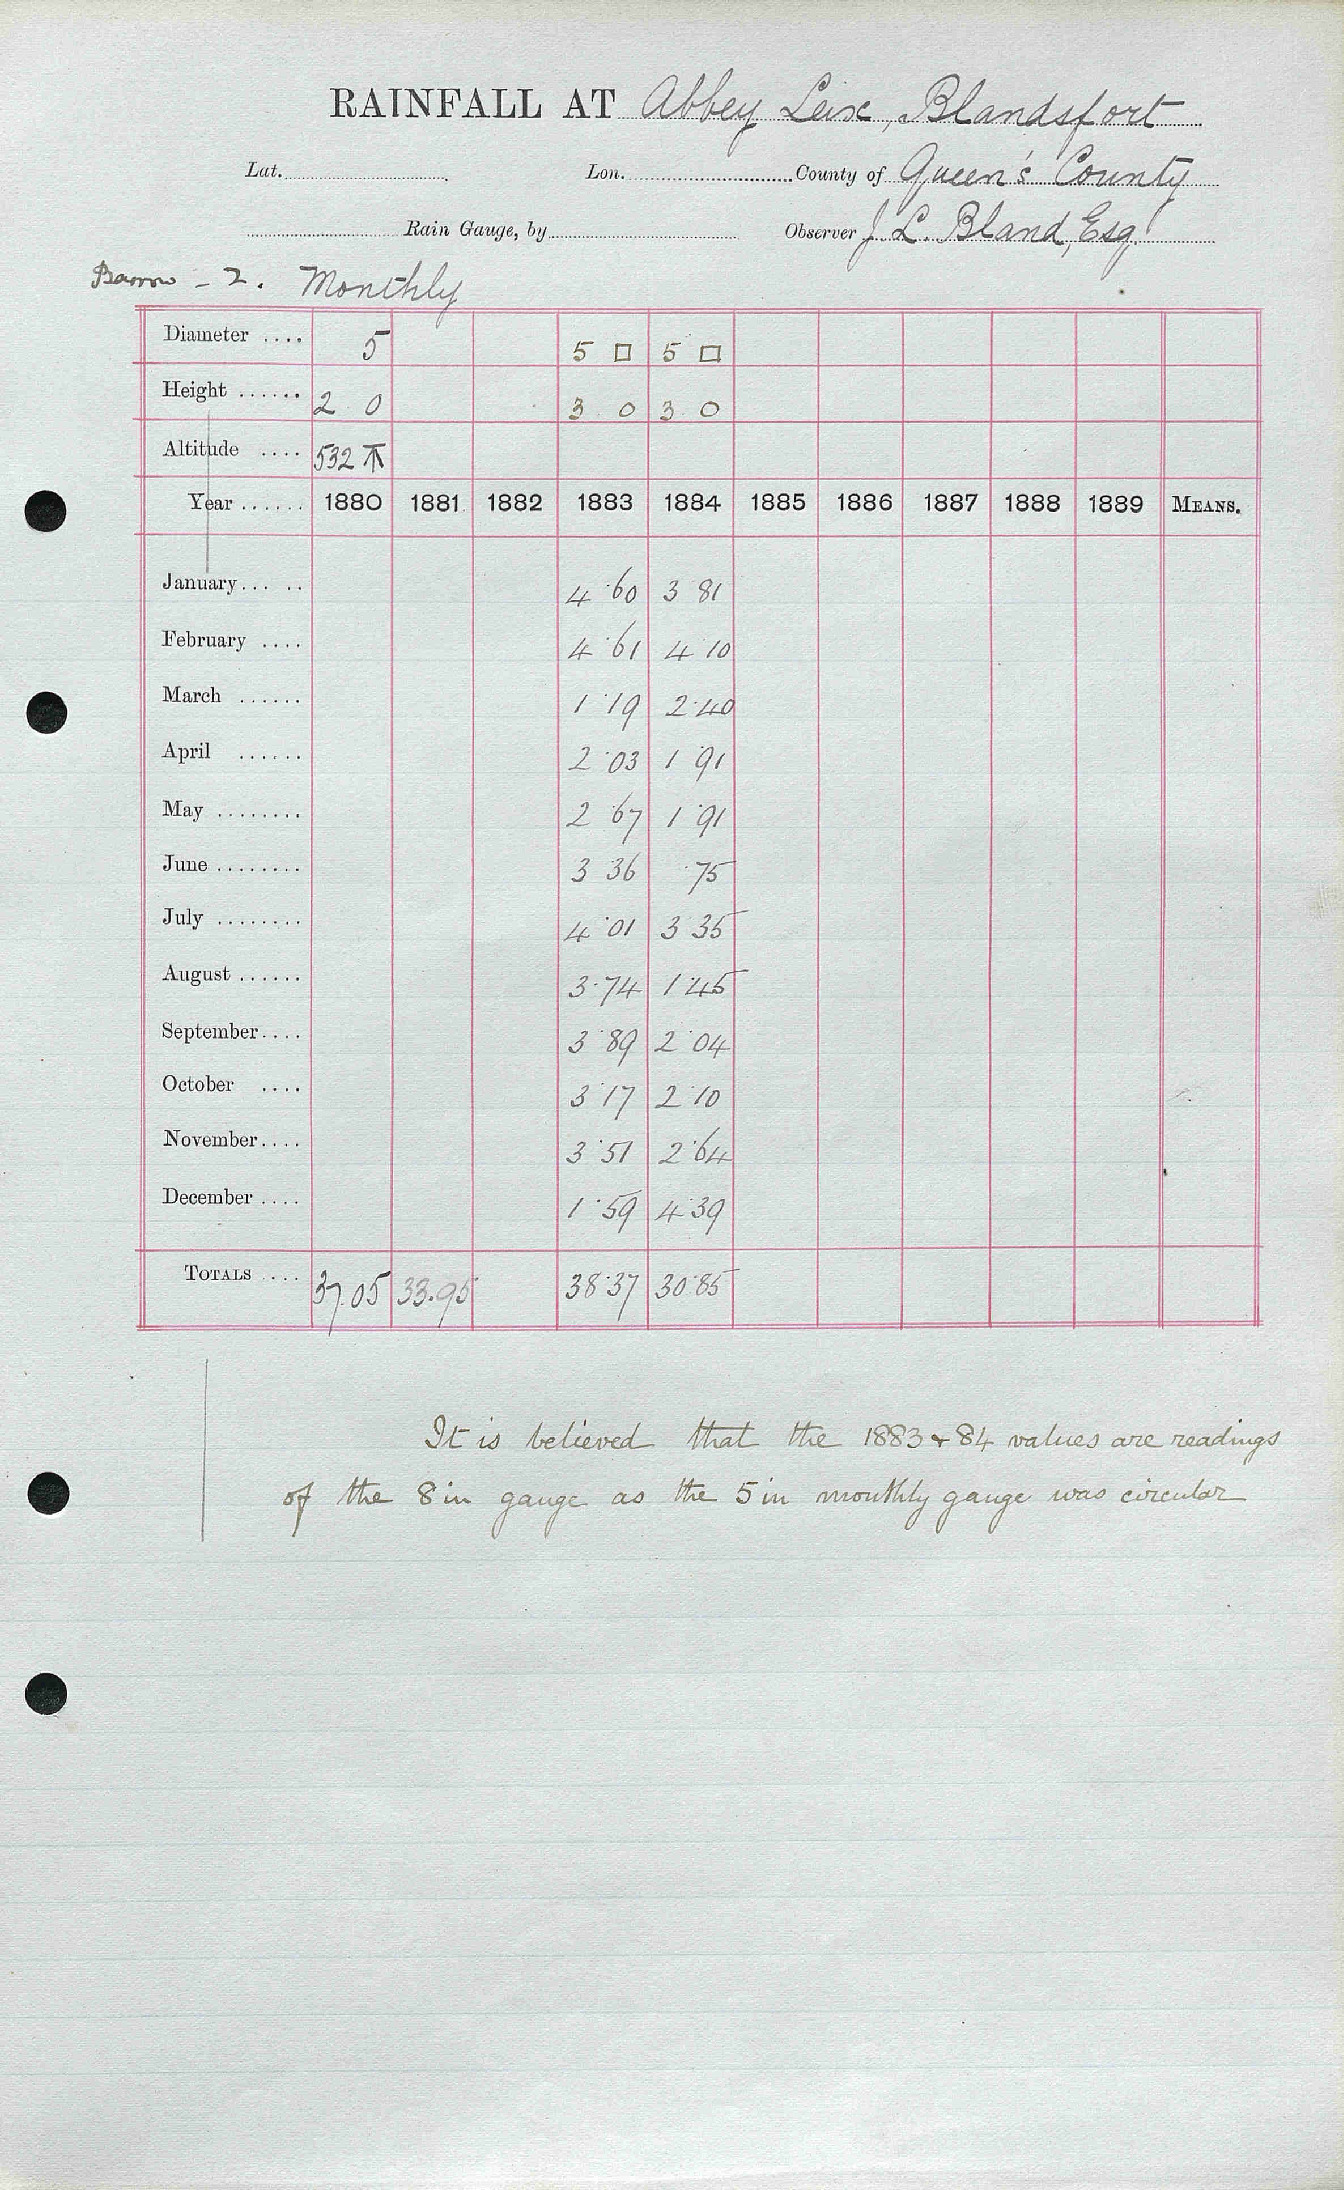 RAINFALL AT Abbey Leix, Blandsfort
Lat. Lon. County of Queen's County
Rain Gauge, by Observer J. L. Bland, Esq.
Barrow - 2. Monthly
Diameter .... 5 5 □ 5 □
Height ...... 2 0 3 0 3 0
Altitude .... 532
Year ...... 1880 1881 1882 1883 1884 1885 1886 1887 1888 1889 MEANS.
January... .. 4·60 3 81
February .... 4·61 4·10
March ...... 1·19 2·40
April ...... 2·03 1 91
May ........ 2 67 1·91
June ........ 3 36 ·75
July ........ 4·01 3 35
August ...... 3·74 1·45
September.... 3·89 2 04
October .... 3·17 2·10
November.... 3·51 2·64
December .... 1·59 4·39
TOTALS .... 37.05 33.95 38·37 30·85
It is believed that the 1883 & 84 values are readings
of the 8 in gauge as the 5 in monthly gauge was circular